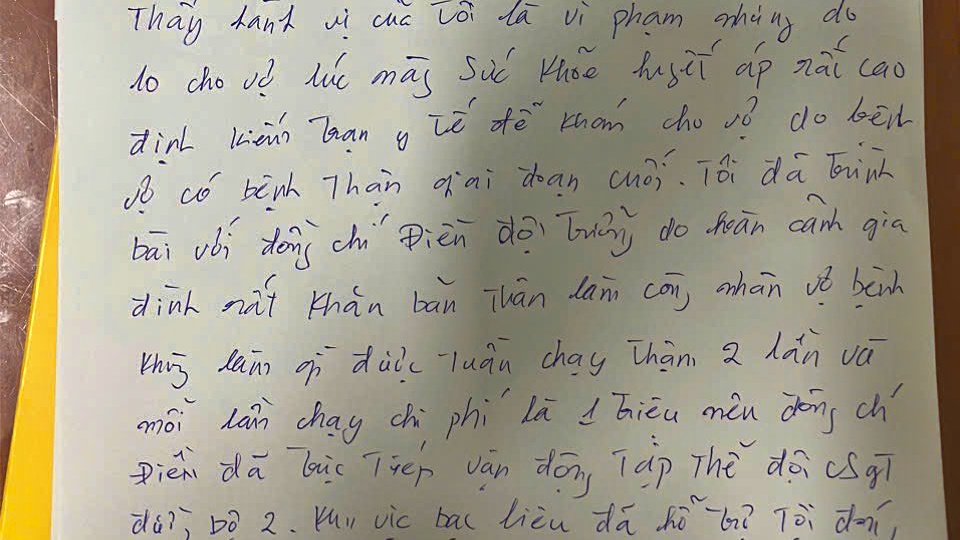 Thấy hành vị của tôi là vi phạm nhưng do
lo cho vợ lúc mãng Sức Khỏe huyết áp rất cao
định kiếm trạn y tế để khám cho vợ do bệnh
vợ có bệnh Thận giai đoạn cuối. Tôi đã trình
bài với đồng chí Điền đội trưởng do hoàn cảnh gia
đình rất khăn bản thân làm công nhân vợ bệnh
không làm gì được Tuần chạy thậm 2 lần và
mỗi lần chạy chi phí là 1 triêu nên đồng chí
Điền đã trực Tiếp vận động Tập Thể đội CSGT
bộ 2. Khu vực bạc liêu đã hỗ trợ Tôi